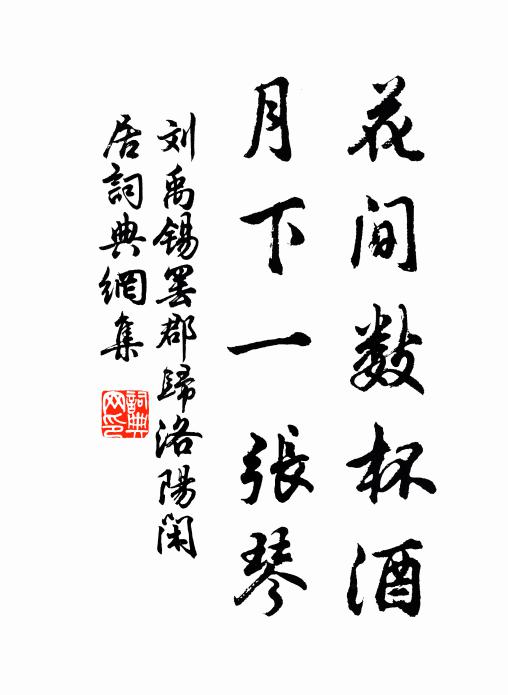 花间数杯酒
月下一張琴
刘禹锡罢郡歸洛陽闲
居詞典網集
詞典
网印